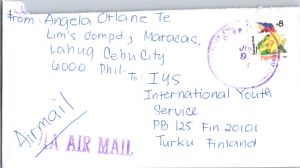 From: Angela Orlane Te
Lim's Compd., Maracas,
Lahug Cebu City
6000 Phil.
To: IYS
International Youth
Service
PB 125 Fin 20101
Turku Finland
Airmail
VIA AIR MAIL